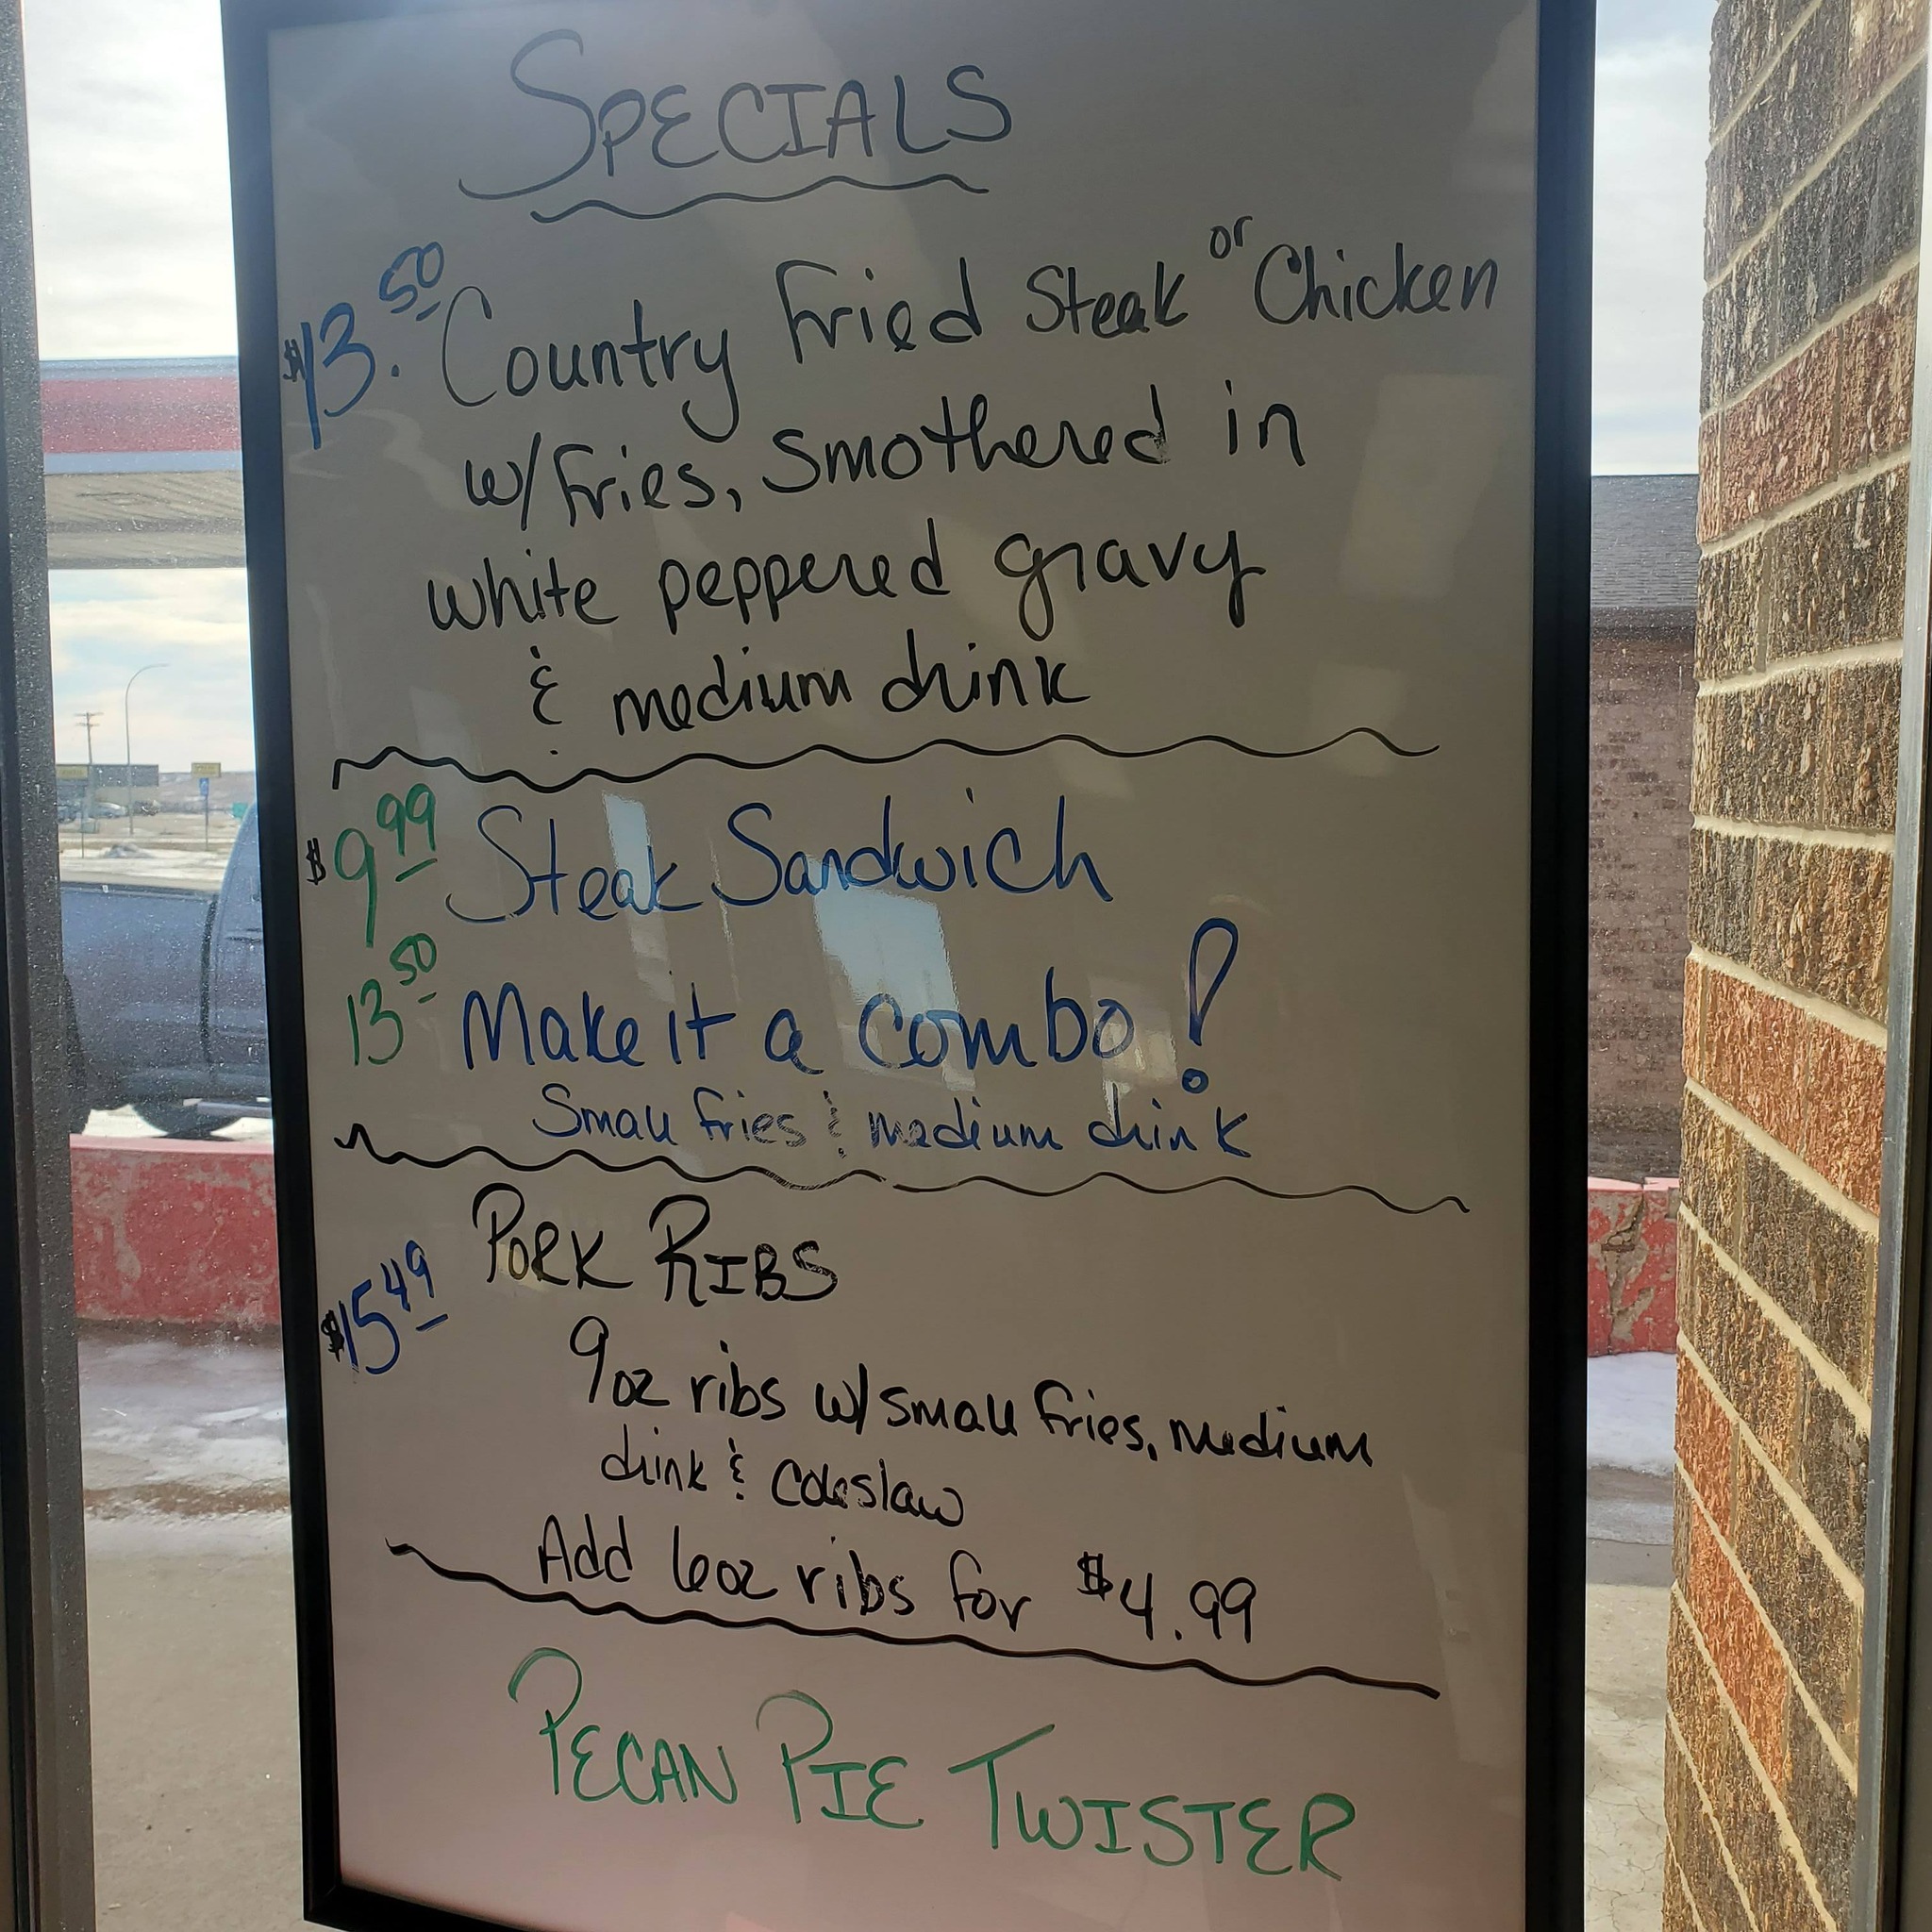 SPECIALS
$13.50 Country Fried Steak or Chicken
w/Fries, Smothered in
white peppered gravy
& medium drink
$9.99 Steak Sandwich
13.50 Make it a combo!
Small fries & medium drink
PORK RIBS
$15.49
9oz ribs w/small fries, medium
drink & coleslaw
Add 6oz ribs for $4.99
PECAN PIE TWISTER